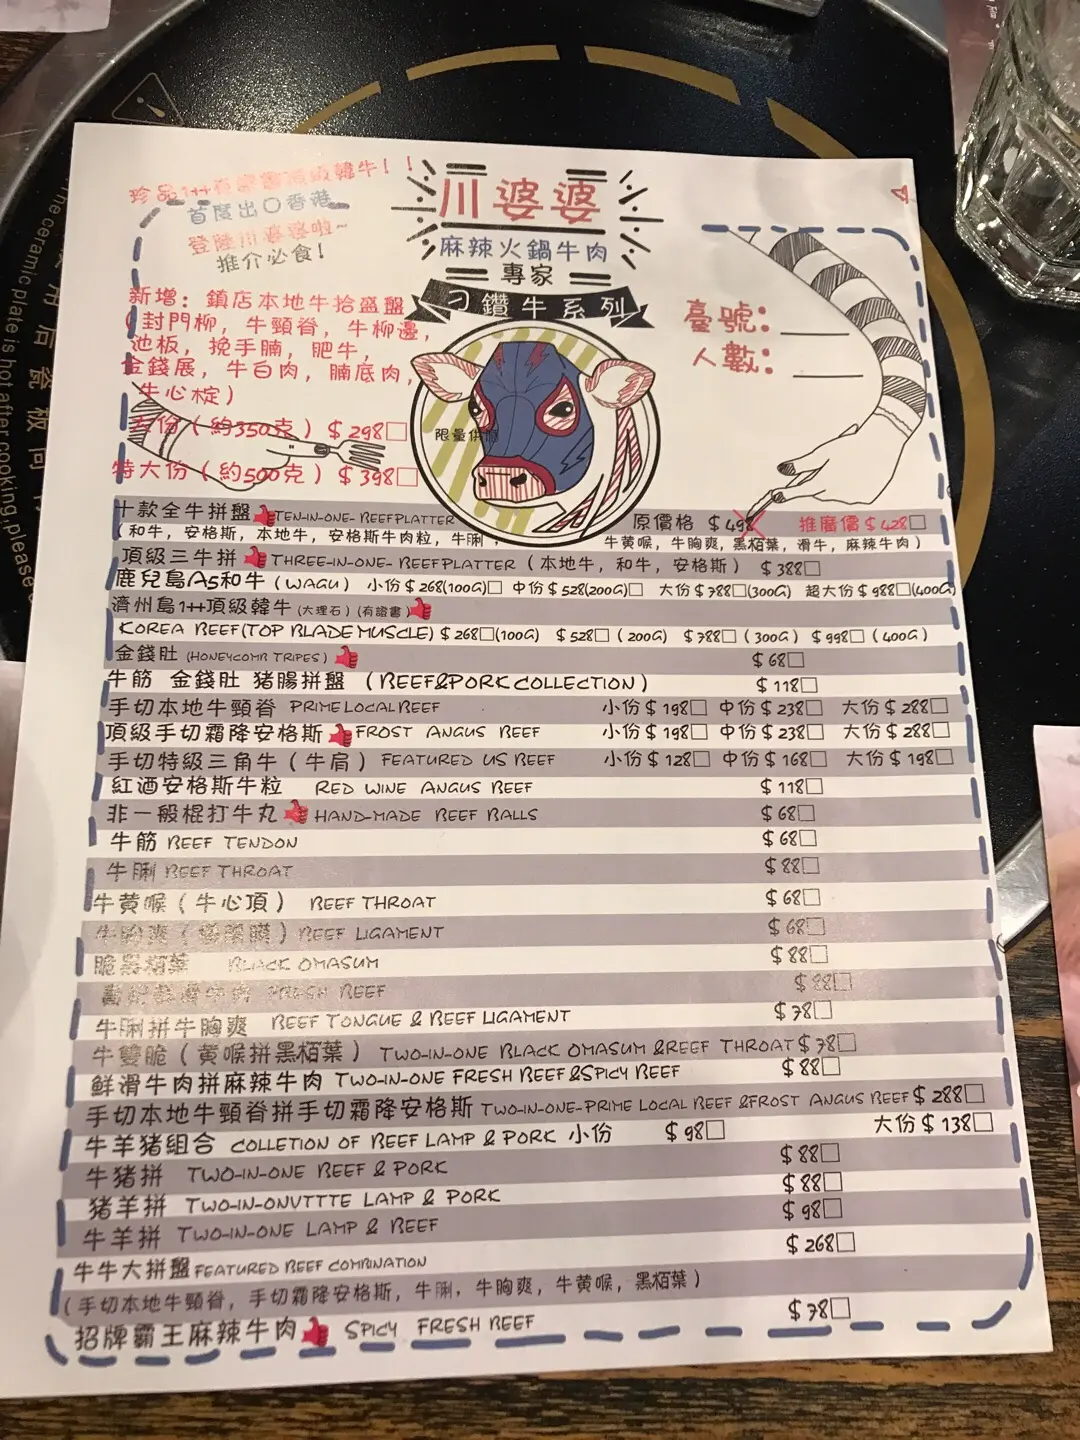 珍品1++有證書頂級韓牛!!
首度出口香港
登陸川婆婆啦~
推介必食!
川婆婆
麻辣火鍋牛肉
專家
刁鑽牛系列
新增: 鎮店本地牛拾盛盤
(封門柳, 牛頸脊, 牛柳邊,
池板, 挽手腩, 肥牛,
金錢展, 牛白肉, 腩底肉,
牛心椗)
(約350克) $298□
特大份(約500克) $398□
臺號:
人數:
限量供應
十款全牛拼盤 TEN-IN-ONE- BEEFPLATTER 原價格 $498 推廣價 $428□
(和牛, 安格斯, 本地牛, 安格斯牛肉粒, 牛脷, 牛黃喉, 牛胸爽, 黑栢葉, 滑牛, 麻辣牛肉)
頂級三牛拼 THREE-IN-ONE- BEEFPLATTER (本地牛, 和牛, 安格斯) $388□
鹿兒島A5和牛 (WAGU) 小份 $268(100G)□ 中份 $528(200G)□ 大份 $788□(300G) 超大份 $988□(400G)
濟州島1++頂級韓牛 (大理石)(有證書)
KOREA BEEF(TOP BLADE MUSCLE) $268□(100G) $528□ (200G) $788□ (300G) $998□ (400G)
金錢肚 (HONEYCOMB TRIPES) $68□
牛筋 金錢肚 豬腸拼盤 (BEEF&PORK COLLECTION) $118□
手切本地牛頸脊 PRIME LOCAL BEEF 小份 $198□ 中份 $238□ 大份 $288□
頂級手切霜降安格斯 FROST ANGUS BEEF 小份 $198□ 中份 $238□ 大份 $288□
手切特級三角牛 (牛肩) FEATURED US BEEF 小份 $128□ 中份 $168□ 大份 $198□
紅酒安格斯牛粒 RED WINE ANGUS BEEF $118□
非一般棍打牛丸 HAND-MADE BEEF BALLS $68□
牛筋 BEEF TENDON $68□
牛脷 BEEF THROAT $88□
牛黃喉 (牛心頂) BEEF THROAT $68□
牛胸爽 BEEF LIGAMENT $68□
脆黑栢葉 BLACK OMASUM $88□
FRESH BEEF $88□
牛脷拼牛胸爽 BEEF TONGUE & BEEF LIGAMENT $78□
牛雙脆 (黃喉拼黑栢葉) TWO-IN-ONE BLACK OMASUM &BEEF THROAT $78□
鮮滑牛肉拼麻辣牛肉 TWO-IN-ONE FRESH BEEF &SPICY BEEF $88□
手切本地牛頸脊拼手切霜降安格斯 TWO-IN-ONE-PRIME LOCAL BEEF &FROST ANGUS BEEF $288□
牛羊豬組合 COLLETION OF BEEF LAMP & PORK 小份 $98□ 大份 $138□
牛豬拼 TWO-IN-ONE BEEF & PORK $88□
豬羊拼 TWO-IN-ONVTTTE LAMP & PORK $88□
牛羊拼 TWO-IN-ONE LAMP & BEEF $98□
牛牛大拼盤 FEATURED BEEF COMBINATION $268□
(手切本地牛頸脊, 手切霜降安格斯, 牛脷, 牛胸爽, 牛黃喉, 黑栢葉)
招牌霸王麻辣牛肉 SPICY FRESH BEEF $78□
The ceramic plate is hot after cooking, please